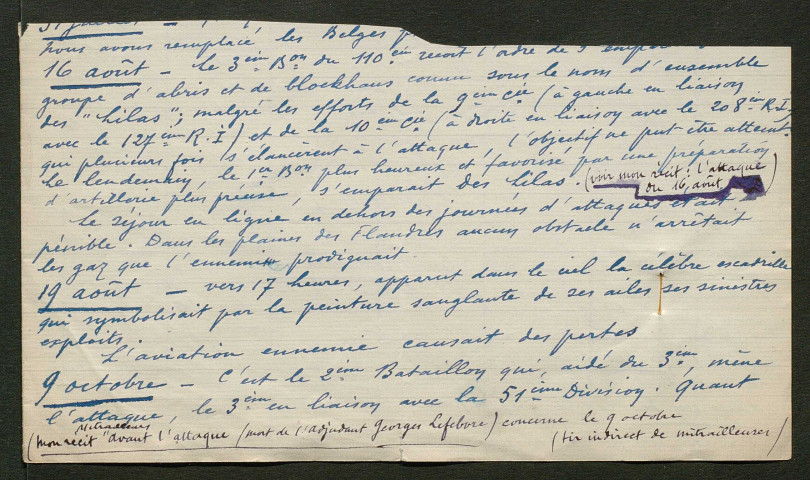 31 juillet –
nous avons remplacé les Belges
16 août – Le 3èm Bon du 110èm reçoit l'ordre de s'emparer
groupe d'abris et de blockhaus connu sous le nom d'ensemble
des "Lilas"; malgré les efforts de la 9èm Cie (à gauche en liaison
avec le 127èm R.I) et de la 10èm Cie (à droite en liaison avec le 208èm R.I)
qui plusieurs fois s'élancèrent à l'attaque, l'objectif ne put être atteint.
Le lendemain, le 1er Bon plus heureux et favorisé par une préparation
d'artillerie plus précise, s'emparait des Lilas. (voir mon récit: l'attaque
du 16 août)
Le séjour en ligne en dehors des journées d'attaques était
pénible. Dans les plaines des Flandres aucun obstacle n'arrêtait
les gaz que l'ennemi prodiguait.
19 août – vers 17 heures, apparut dans le ciel la célèbre escadrille
qui symbolisait par la peinture sanglante de ses ailes ses sinistres
exploits.
L'aviation ennemie causait des pertes
9 octobre – C'est le 2èm Bataillon qui, aidé du 3èm, mène
l'attaque, le 3èm en liaison avec la 51èm Division. Quant
Mitrailleurs
(mon récit "avant l'attaque (mort de l'adjudant Georges Lefebvre) concerne le 9 octobre
(tir indirect de mitrailleuses)